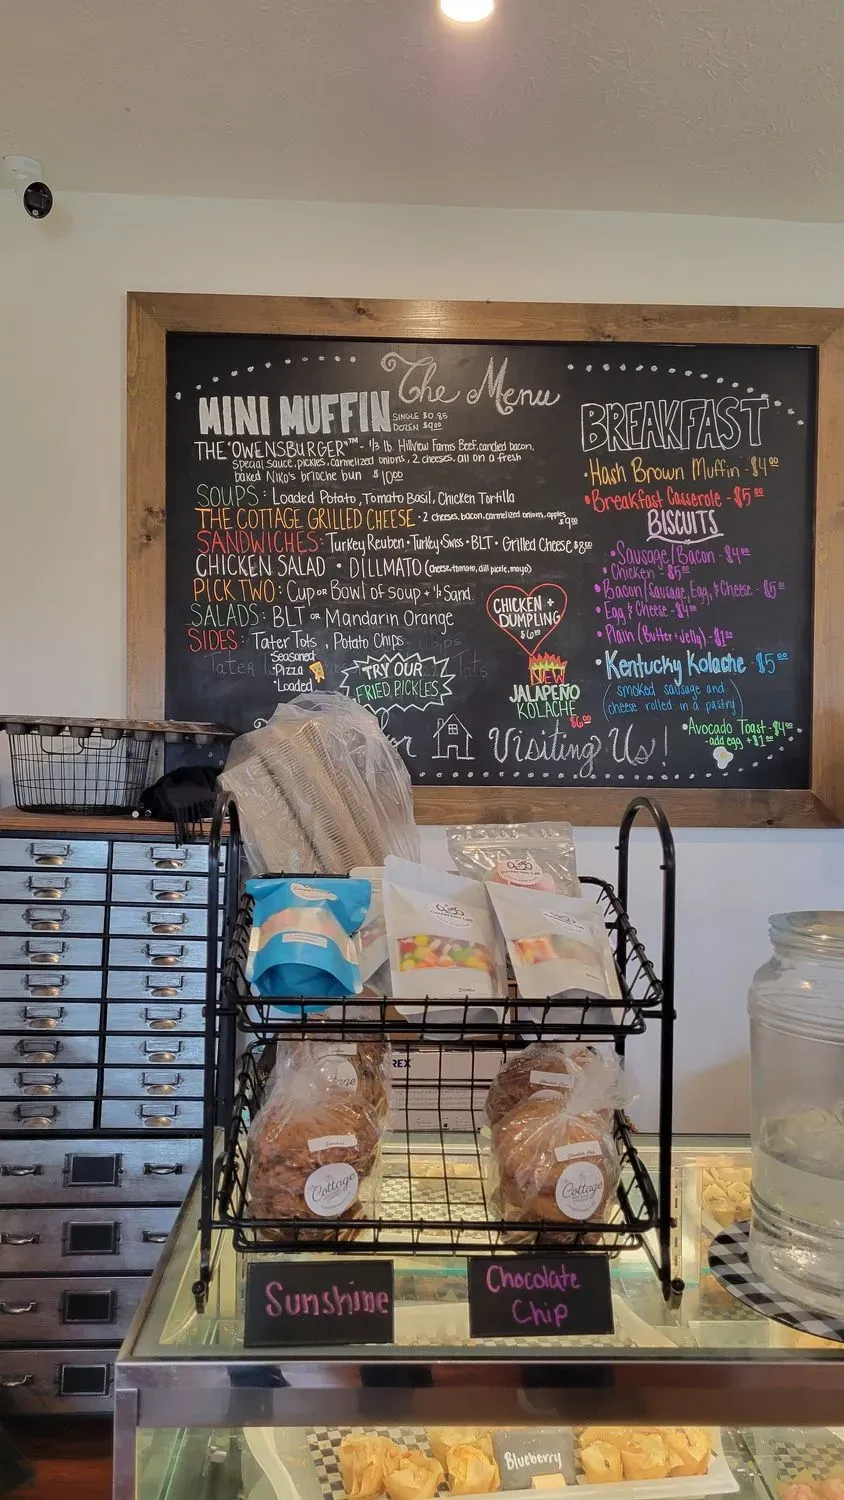 The Menu
MINI MUFFIN
SINGLE $0.85
DOZEN $9.00
THE "OWENSBURGER"™ - 1/3 lb. Hillview Farms Beef, candied bacon,
special sauce, pickles, carmelized onions, 2 cheeses, all on a fresh
baked Niko's brioche bun $10.00
SOUPS: Loaded Potato, Tomato Basil, Chicken Tortilla
THE COTTAGE GRILLED CHEESE - 2 cheeses, bacon, carmelized onions, apples $9.00
SANDWICHES: Turkey Reuben • Turkey Swiss • BLT • Grilled Cheese $8.00
CHICKEN SALAD • DILLMATO (cheese, tomato, dill pickle, mayo)
PICK TWO: Cup or Bowl of soup + ½ Sand.
SALADS: BLT or Mandarin Orange
SIDES: Tater Tots, Potato Chips
• Seasoned
• Pizza
• Loaded
TRY OUR
FRIED PICKLES
CHICKEN +
DUMPLING
$6.00
NEW
JALAPEÑO
KOLACHE
$6.00
BREAKFAST
• Hash Brown Muffin - $4.00
• Breakfast Casserole - $5.00
BISCUITS
• Sausage/Bacon - $4.00
• Chicken - $5.00
• Bacon/Sausage, Egg, & Cheese - $5.00
• Egg & Cheese - $4.00
• Plain (Butter + Jelly) - $1.00
• Kentucky Kolache - $5.00
(smoked sausage and
cheese rolled in a pastry)
• Avocado Toast - $4.00
- add egg + $1.00
for Visiting Us!
REX
Sunshine
Chocolate Chip
Cottage
Cottage
Sunshine
Chocolate
Chip
Blueberry